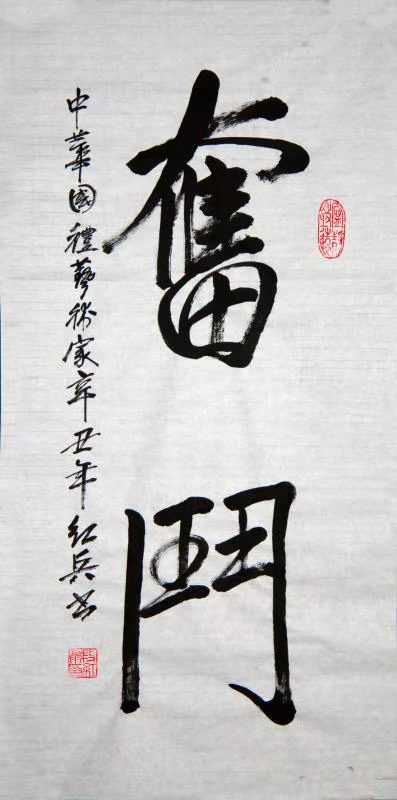 奮鬥
中華國禮藝術家辛丑年紅兵書